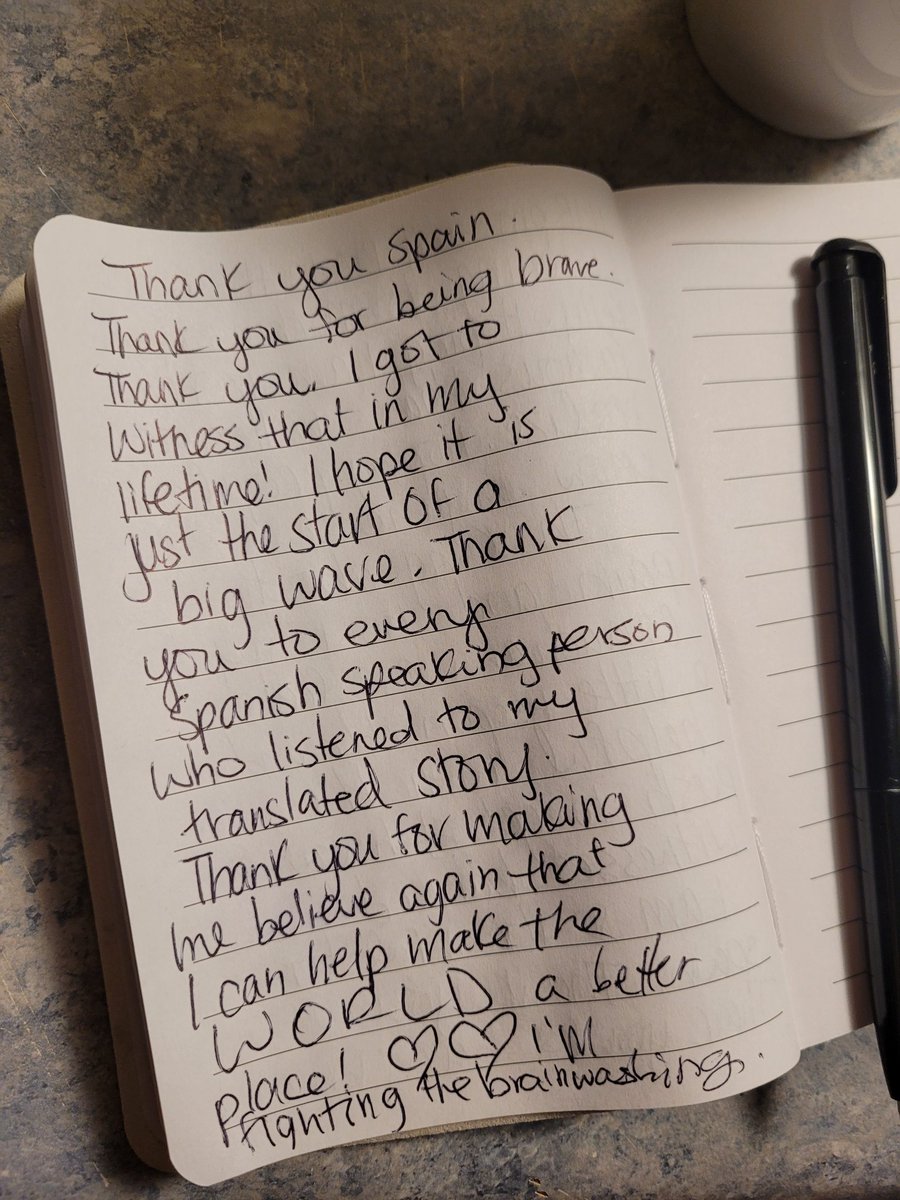 Thank you Spain.
Thank you for being brave.
Thank you. I got to
Witness that in my
lifetime! I hope it is
just the start of a
big wave. Thank
you to every
Spanish speaking person
who listened to my
translated story.
Thank you for making
me believe again that
I can help make the
WORLD a better
place! ♡♡ I'm
fighting the brainwashing.